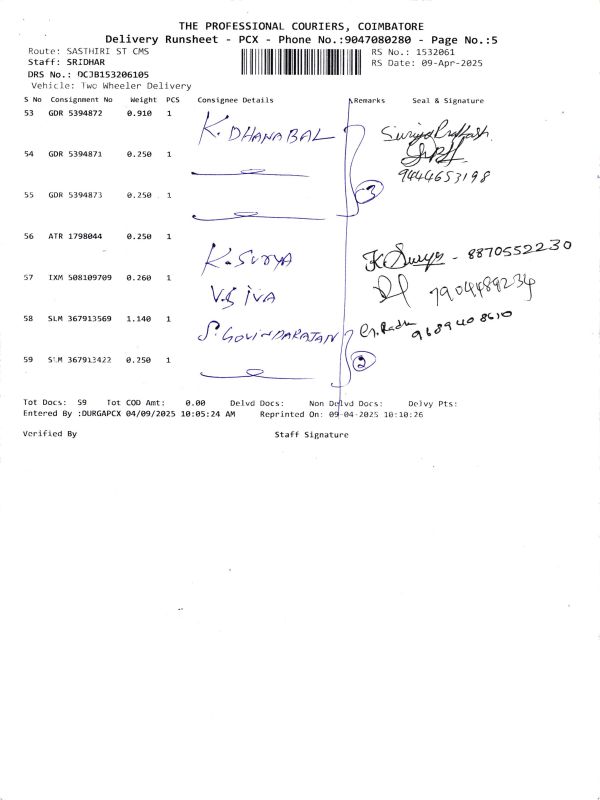 THE PROFESSIONAL COURIERS, COIMBATORE
Delivery Runsheet - PCX - Phone No.:9047080280 - Page No.:5
Route: SASTHIRI ST CMS RS No.: 1532061
Staff: SRIDHAR RS Date: 09-Apr-2025
DRS No.: DCJB153206105
Vehicle: Two Wheeler Delivery
S No Consignment No Weight PCS Consignee Details Remarks Seal & Signature
53 GDR 5394872 0.910 1 K. DHANABAL Suriya Prakash
54 GDR 5394871 0.250 1 9444653198
55 GDR 5394873 0.250 1 3
56 ATR 1798044 0.250 1 K. SURYA K Surya - 8870552230
57 IXM 508109709 0.260 1 V. SIVA 7904489234
58 SLM 367913569 1.140 1 S. GOVINDARAJAN 9689408610
59 SLM 367913422 0.250 1 2
Tot Docs: 59 Tot COD Amt: 0.00 Delvd Docs: Non Delvd Docs: Delvy Pts:
Entered By :DURGAPCX 04/09/2025 10:05:24 AM Reprinted On: 09-04-2025 10:10:26
Verified By Staff Signature